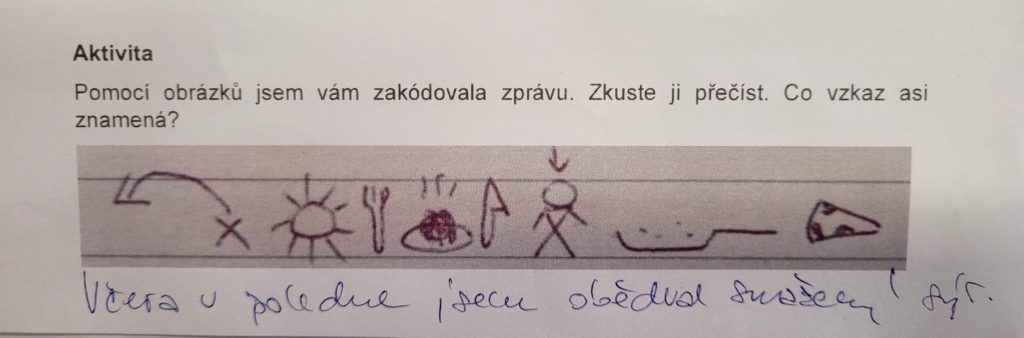 Aktivita
Pomocí obrázků jsem vám zakódovala zprávu. Zkuste ji přečíst. Co vzkaz asi
znamená?
Včera v poledne jsem obědval smažený sýr.